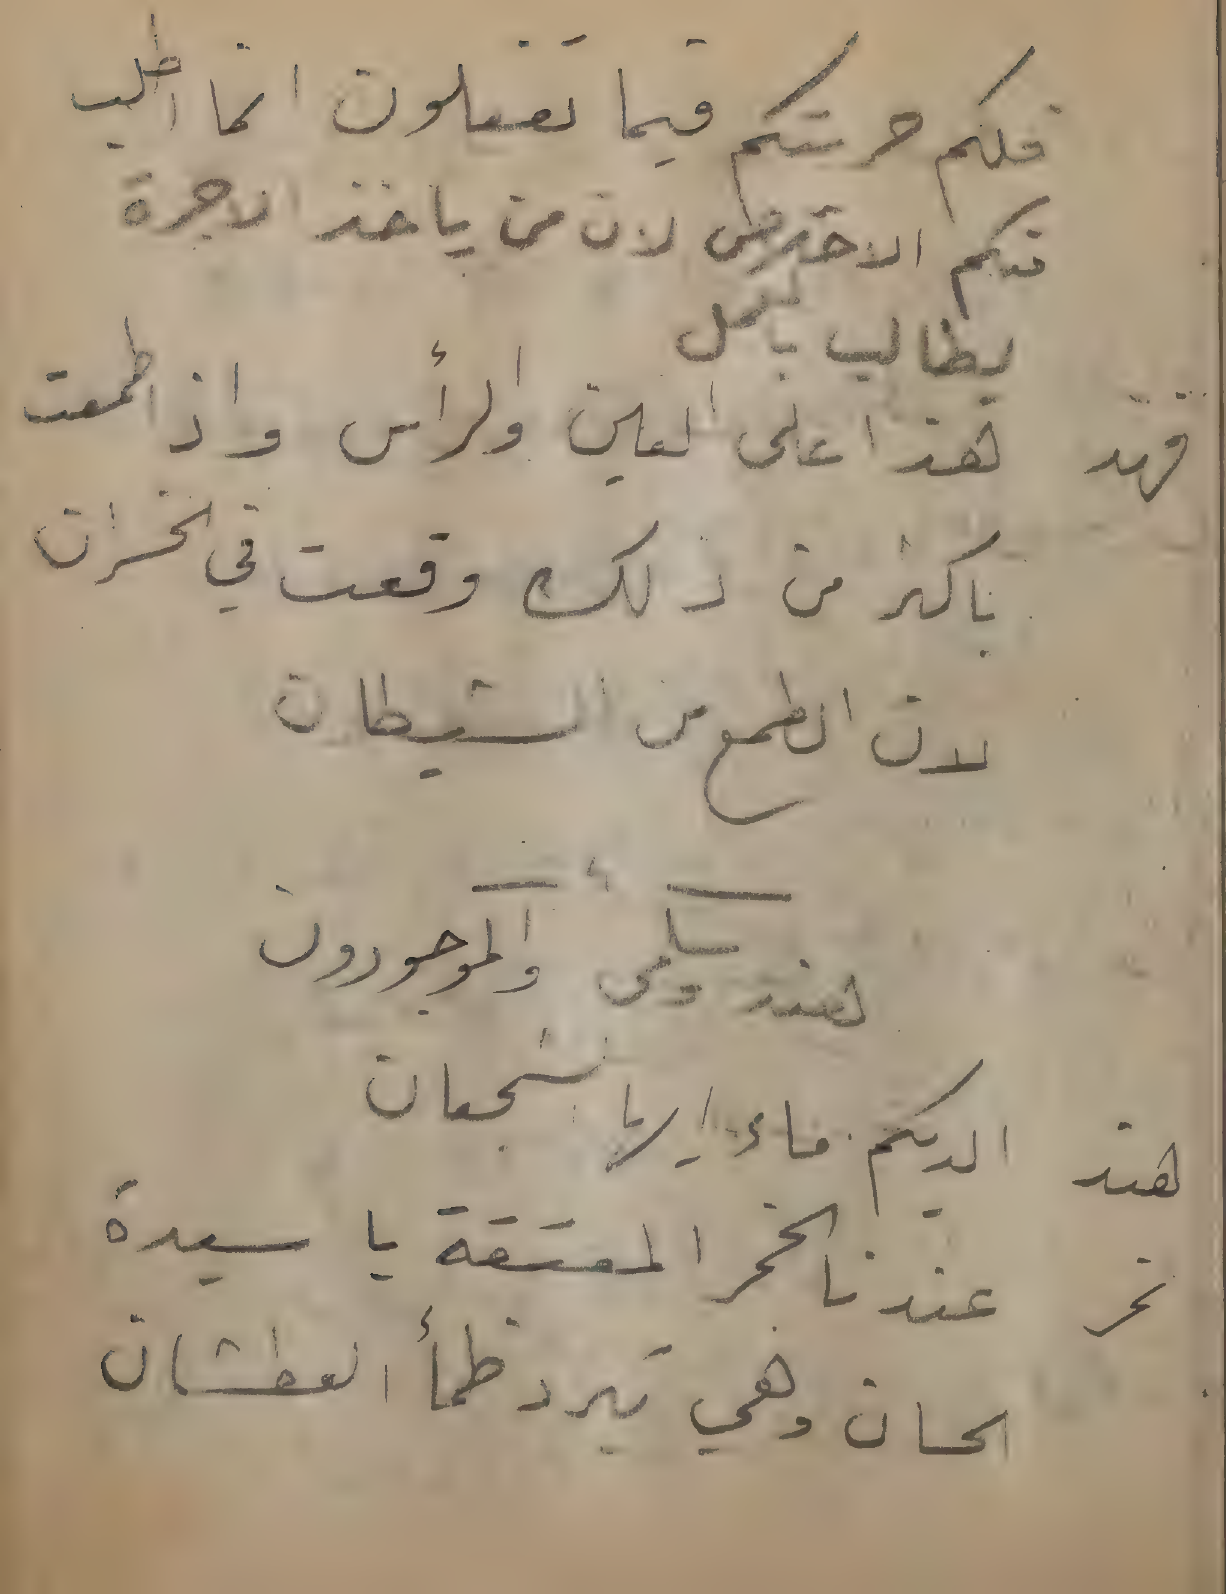 فلكم حريتكم فيما تفعلون انما اطلب
منكم الاحتراس لان من ياخذ الاجرة
يطالب بالعمل
فهد هذا على العين والرأس واذا طمعت
باكثر من ذلك وقعت في الخسران
لان الطمع من الشيطان
هند وسلمى والموجودون
هند الديكم ماء ايها الشجعان
عندنا الخمر المعتقة يا سيدة
الحسان وهي تبرد ظمأ العطشان